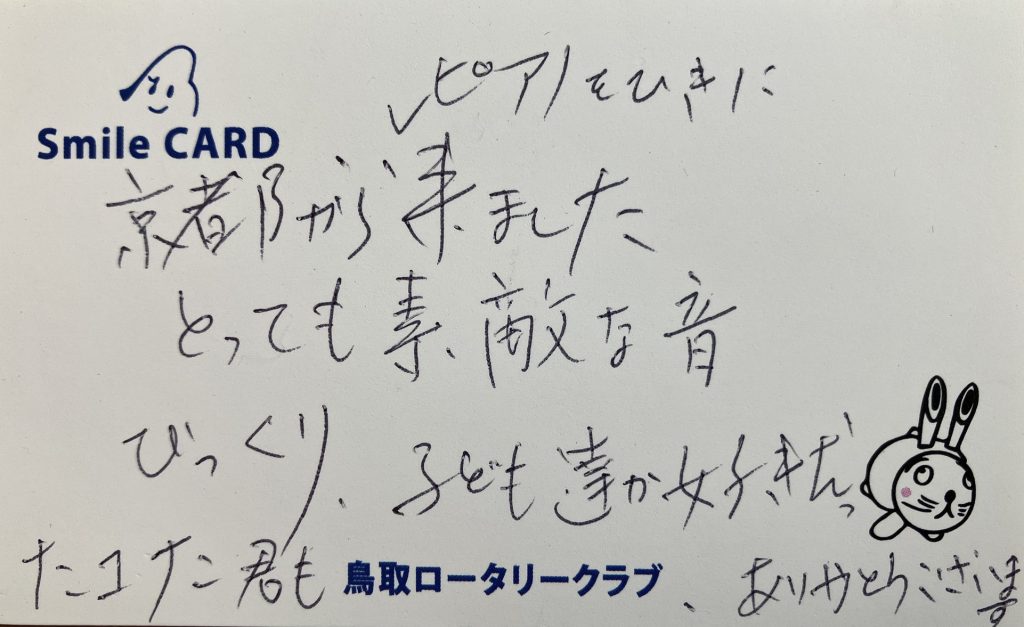 Smile CARD
ピアノをひきに
京都から来ました
とっても素敵な音
びっくり、子ども達が好きだっ
たユナニ君も
鳥取ロータリークラブ
、ありがとうございます